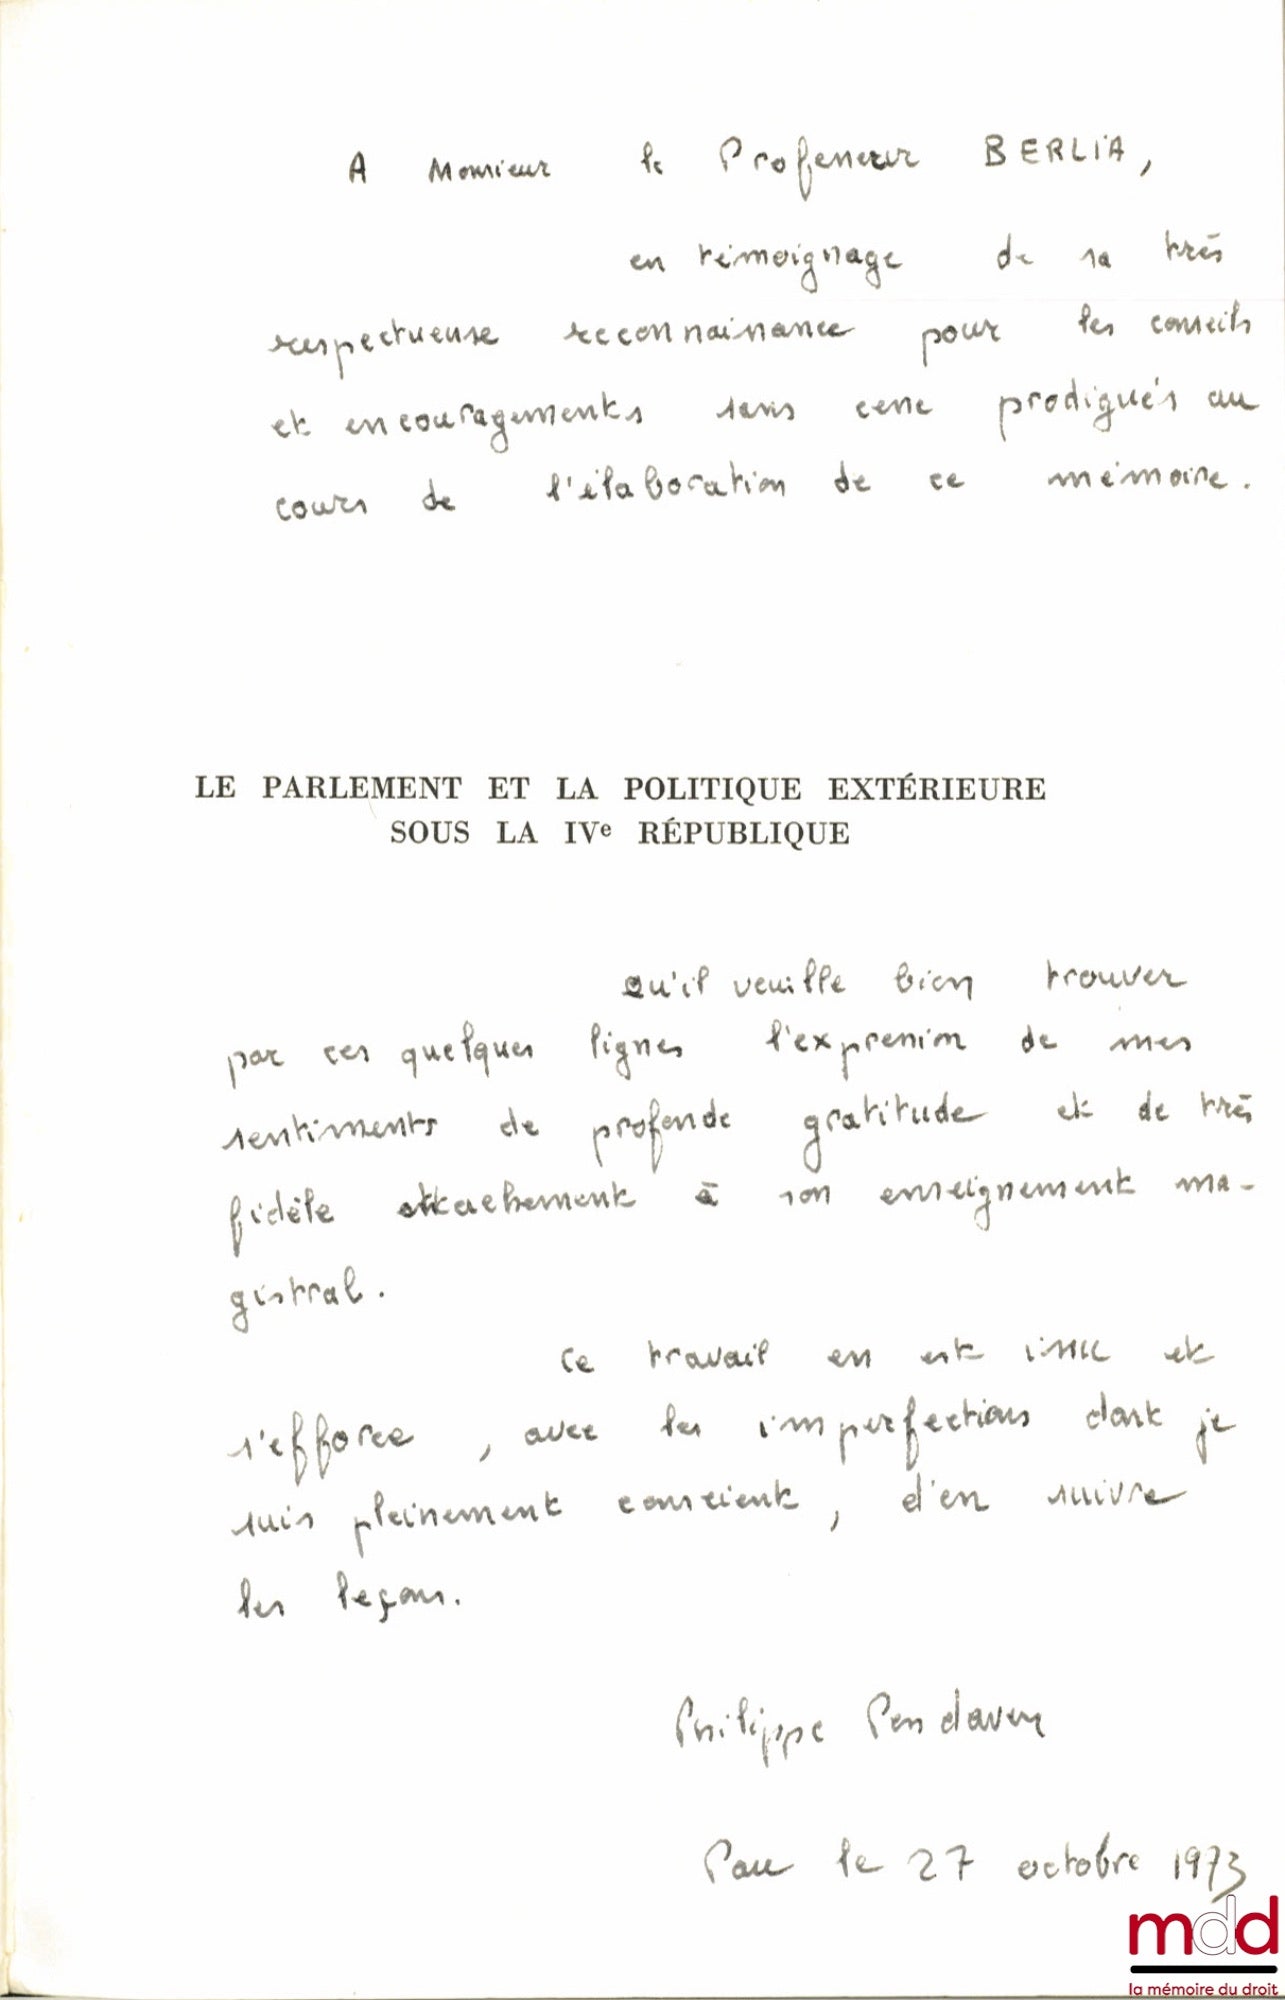 A Monsieur le Professeur BERLIA,
en témoignage de sa très
respectueuse reconnaissance pour les conseils
et encouragements sans cesse prodigués au
cours de l'élaboration de ce mémoire.
LE PARLEMENT ET LA POLITIQUE EXTÉRIEURE
SOUS LA IVe RÉPUBLIQUE
Qu'il veuille bien trouver
par ces quelques lignes l'expression de mes
sentiments de profonde gratitude et de très
fidèle attachement à son enseignement ma-
gistral.
Ce travail en est issu et
s'efforce, avec les imperfections dont je
suis pleinement conscient, d'en suivre
les leçons.
Philippe Pondaven
Pau le 27 octobre 1973
mdd
la mémoire du droit